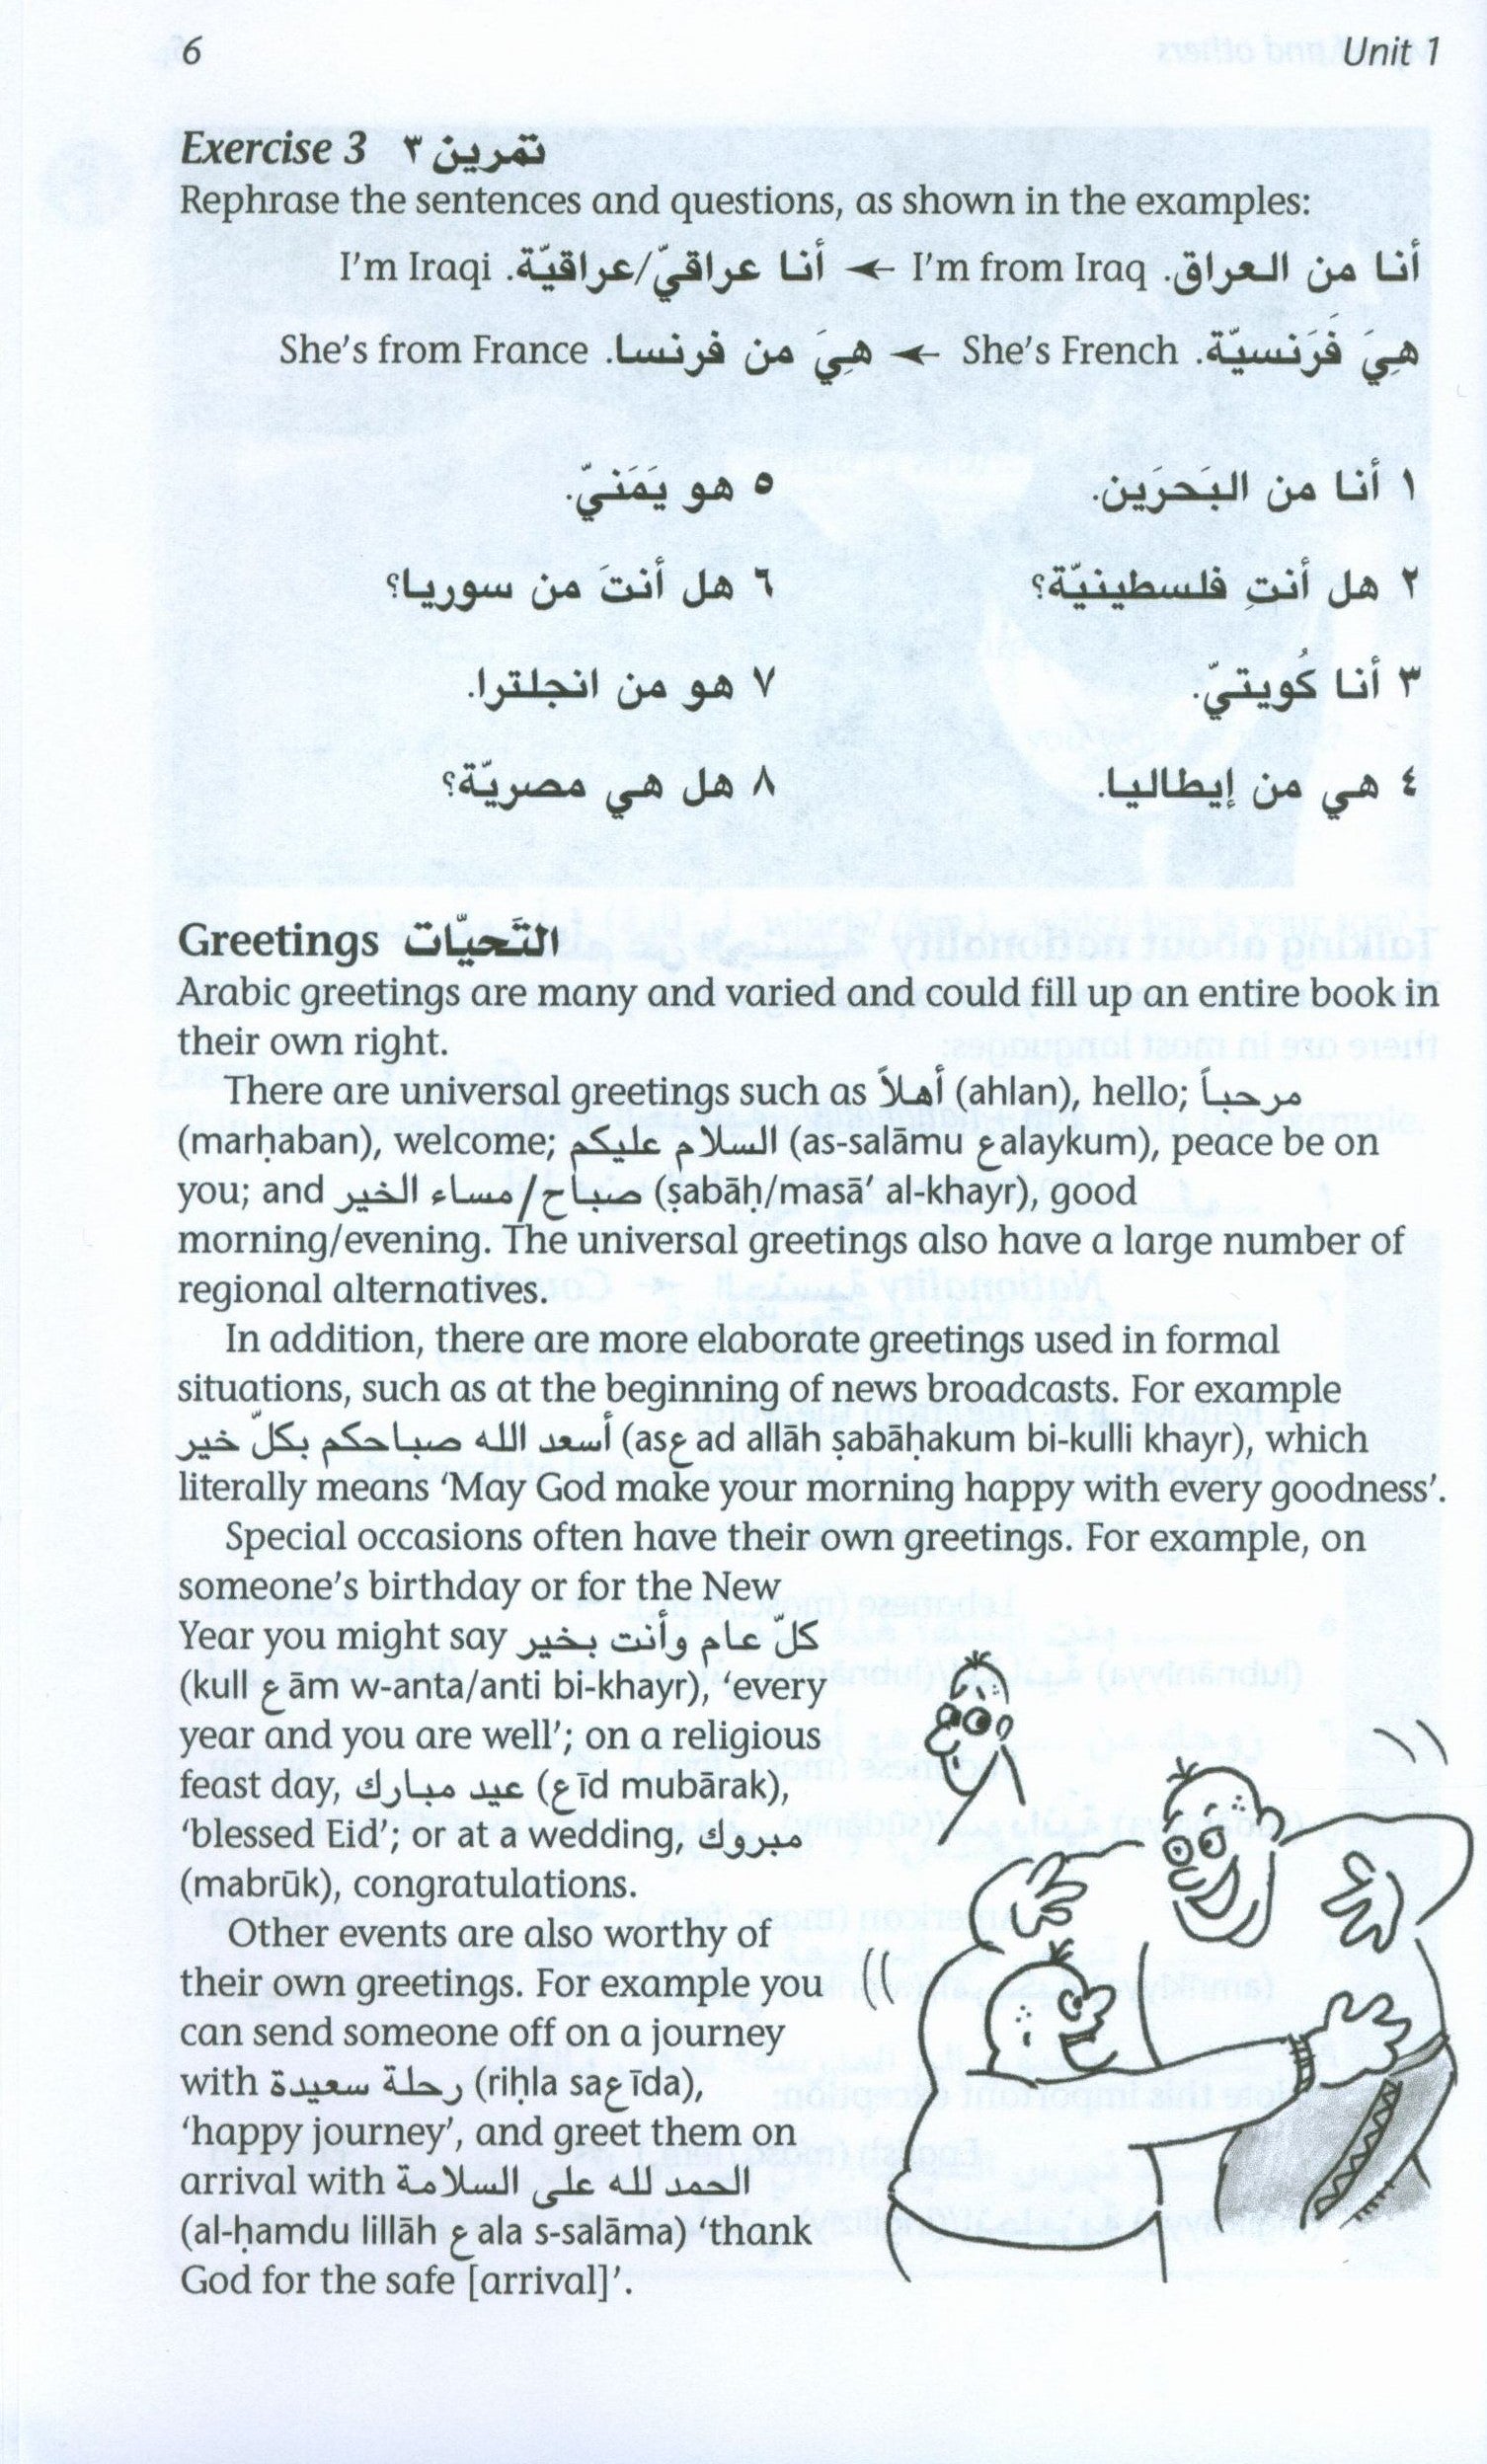 6
Unit 1
Exercise 3 تمرين ٣
Rephrase the sentences and questions, as shown in the examples:
أنا من العراق. I'm from Iraq ← أنا عراقيّ/عراقيّة. I'm Iraqi
هِيَ فَرَنسيّة. She's French ← هِيَ من فرنسا. She's from France
١ أنا من البَحرَين.
٥ هو يَمَنيّ.
٢ هل أنتِ فلسطينيّة؟
٦ هل أنتَ من سوريا؟
٣ أنا كُويتيّ.
٧ هو من انجلترا.
٤ هي من إيطاليا.
٨ هل هي مصريّة؟
Greetings التَحيّات
Arabic greetings are many and varied and could fill up an entire book in
their own right.
There are universal greetings such as أهلاً (ahlan), hello; مرحباً
(marḥaban), welcome; السلام عليكم (as-salāmu عalaykum), peace be on
you; and صباح/مساء الخير (ṣabāḥ/masā’ al-khayr), good
morning/evening. The universal greetings also have a large number of
regional alternatives.
In addition, there are more elaborate greetings used in formal
situations, such as at the beginning of news broadcasts. For example
أسعد الله صباحكم بكلّ خير (asعad allāh ṣabāḥakum bi-kulli khayr), which
literally means ‘May God make your morning happy with every goodness’.
Special occasions often have their own greetings. For example, on
someone’s birthday or for the New
Year you might say كلّ عام وأنت بخير
(kull عām w-anta/anti bi-khayr), ‘every
year and you are well’; on a religious
feast day, عيد مبارك (عīd mubārak),
‘blessed Eid’; or at a wedding, مبروك
(mabrūk), congratulations.
Other events are also worthy of
their own greetings. For example you
can send someone off on a journey
with رحلة سعيدة (riḥla saعīda),
‘happy journey’, and greet them on
arrival with الحمد لله على السلامة
(al-ḥamdu lillāh عala s-salāma) ‘thank
God for the safe [arrival]’.